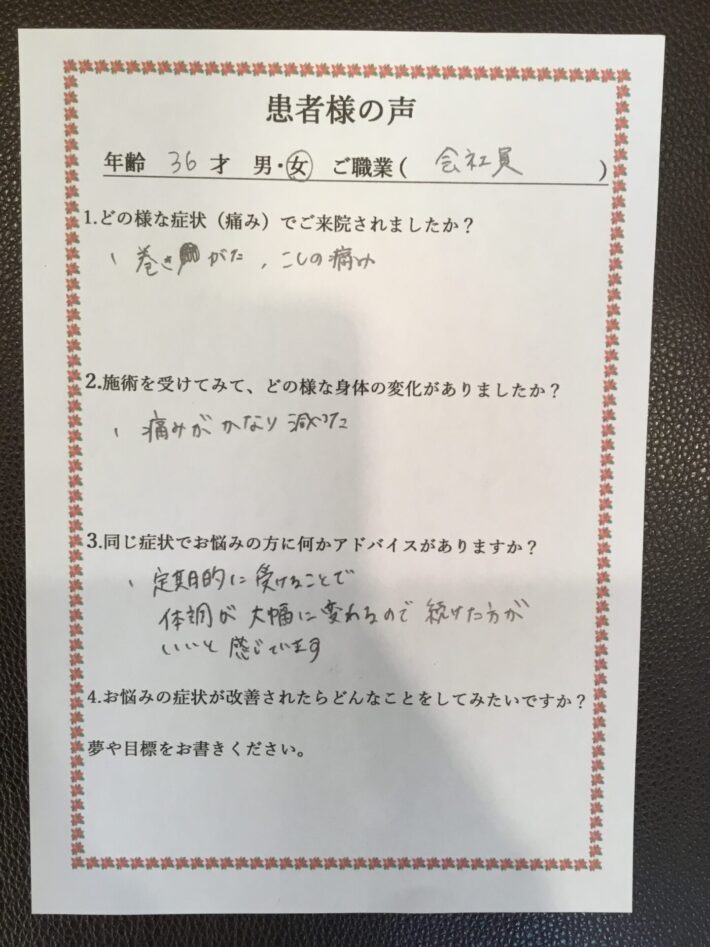 患者様の声
年齢 36 才 男・女 ご職業( 会社員 )
1.どの様な症状(痛み)でご来院されましたか?
、巻き がた、こしの痛み
2.施術を受けてみて、どの様な身体の変化がありましたか?
、痛みが かなり 減った
3.同じ症状でお悩みの方に何かアドバイスがありますか?
、定期的に受けることで
体調が 大幅に変わるので 続けた方が
いいと 感じています
4.お悩みの症状が改善されたらどんなことをしてみたいですか?
夢や目標をお書きください。